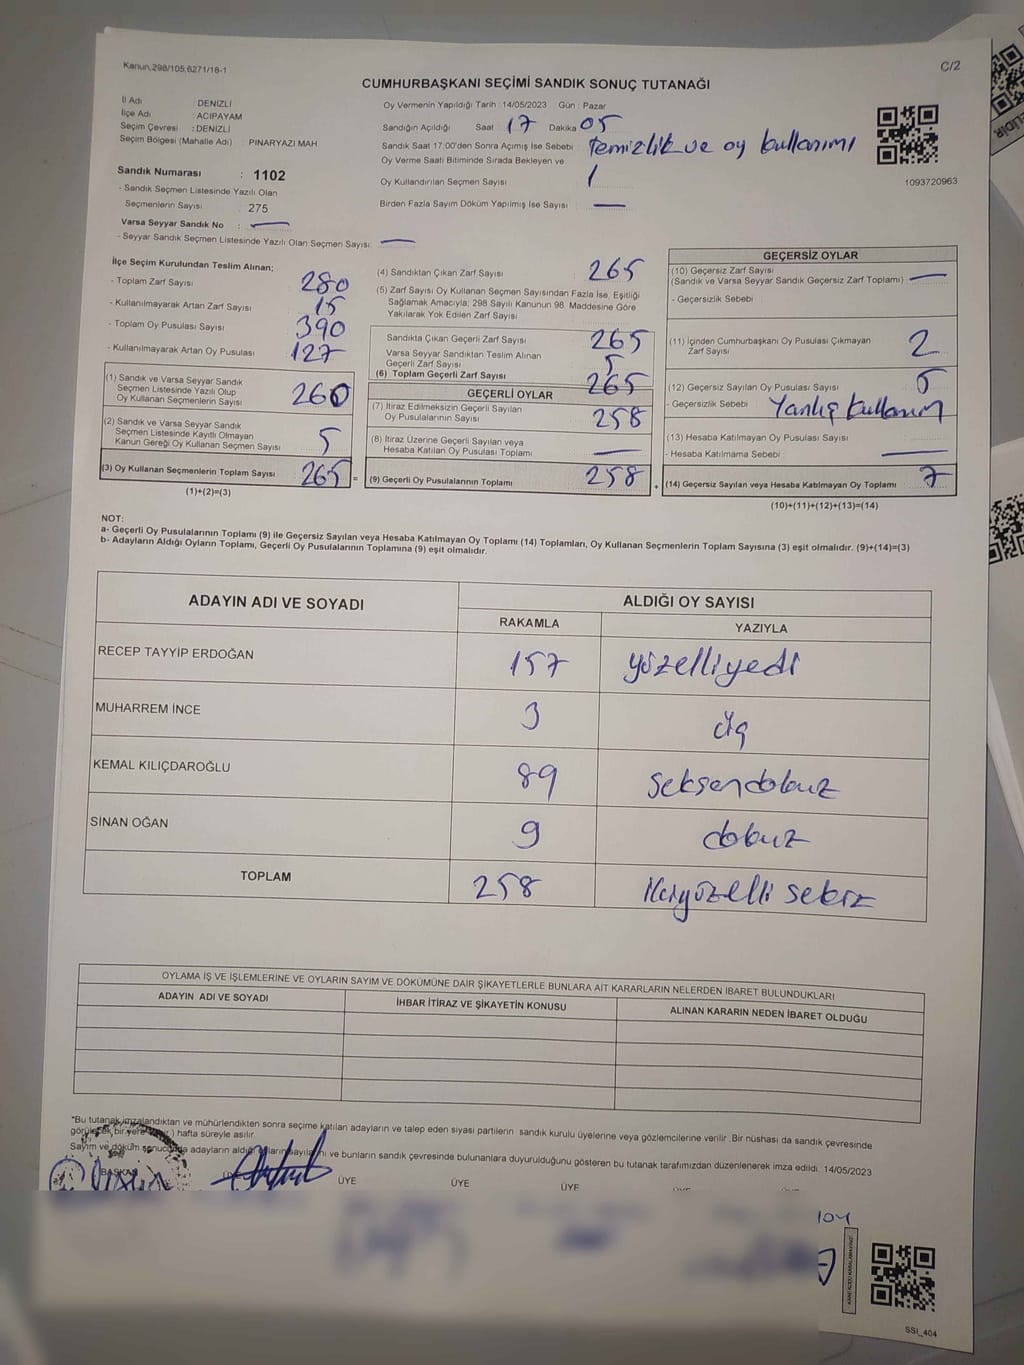 Kanun,298/105,6271/18-1
C/2
CUMHURBAŞKANI SEÇİMİ SANDIK SONUÇ TUTANAĞI
İl Adı : DENİZLİ
İlçe Adı : ACIPAYAM
Seçim Çevresi : DENİZLİ
Seçim Bölgesi (Mahalle Adı) PINARYAZI MAH.
Sandık Numarası : 1102
- Sandık Seçmen Listesinde Yazılı Olan
Seçmenlerin Sayısı : 275
Varsa Seyyar Sandık No : —
- Seyyar Sandık Seçmen Listesinde Yazılı Olan Seçmen Sayısı: —
Oy Vermenin Yapıldığı Tarih : 14/05/2023 Gün : Pazar
Sandığın Açıldığı Saat : 17 Dakika 05
Sandık Saat 17:00'den Sonra Açımış İse Sebebi : temizlik ve oy kullanımı
Oy Verme Saati Bitiminde Sırada Bekleyen ve
Oy Kullandırılan Seçmen Sayısı 1
Birden Fazla Sayım Döküm Yapılmış İse Sayısı : —
1093720963
İlçe Seçim Kurulundan Teslim Alınan;
- Toplam Zarf Sayısı : 280
- Kullanılmayarak Artan Zarf Sayısı : 15
- Toplam Oy Pusulası Sayısı : 390
- Kullanılmayarak Artan Oy Pusulası : 127
(1) Sandık ve Varsa Seyyar Sandık
Seçmen Listesinde Yazılı Olup
Oy Kullanan Seçmenlerin Sayısı 260
(2) Sandık ve Varsa Seyyar Sandık
Seçmen Listesinde Kayıtlı Olmayan
Kanun Gereği Oy Kullanan Seçmen Sayısı 5
(3) Oy Kullanan Seçmenlerin Toplam Sayısı 265 =
(1)+(2)=(3)
(4) Sandıktan Çıkan Zarf Sayısı : 265
(5) Zarf Sayısı Oy Kullanan Seçmen Sayısından Fazla İse, Eşitliği
Sağlamak Amacıyla; 298 Sayılı Kanunun 98. Maddesine Göre
Yakılarak Yok Edilen Zarf Sayısı
Sandıkta Çıkan Geçerli Zarf Sayısı : 265
Varsa Seyyar Sandıktan Teslim Alınan
Geçerli Zarf Sayısı 5
(6) Toplam Geçerli Zarf Sayısı : 265
GEÇERLİ OYLAR
(7) İtiraz Edilmeksizin Geçerli Sayılan
Oy Pusulalarının Sayısı : 258
(8) İtiraz Üzerine Geçerli Sayılan veya
Hesaba Katılan Oy Pusulası Toplamı : —
(9) Geçerli Oy Pusulalarının Toplamı 258 +
GEÇERSİZ OYLAR
(10) Geçersiz Zarf Sayısı
(Sandık ve Varsa Seyyar Sandık Geçersiz Zarf Toplamı) —
- Geçersizlik Sebebi :
(11) İçinden Cumhurbaşkanı Oy Pusulası Çıkmayan
Zarf Sayısı 2
(12) Geçersiz Sayılan Oy Pusulası Sayısı : 5
- Geçersizlik Sebebi : Yanlış kullanım
(13) Hesaba Katılmayan Oy Pusulası Sayısı :
- Hesaba Katılmama Sebebi : —
(14) Geçersiz Sayılan veya Hesaba Katılmayan Oy Toplamı : 7
(10)+(11)+(12)+(13)=(14)
NOT:
a- Geçerli Oy Pusulalarının Toplamı (9) ile Geçersiz Sayılan veya Hesaba Katılmayan Oy Toplamı (14) Toplamları, Oy Kullanan Seçmenlerin Toplam Sayısına (3) eşit olmalıdır. (9)+(14)=(3)
b- Adayların Aldığı Oyların Toplamı, Geçerli Oy Pusulalarının Toplamına (9) eşit olmalıdır.
ADAYIN ADI VE SOYADI ALDIĞI OY SAYISI
RAKAMLA YAZIYLA
RECEP TAYYİP ERDOĞAN 157 yüzelliyedi
MUHARREM İNCE 3 üç
KEMAL KILIÇDAROĞLU 89 seksendokuz
SİNAN OĞAN 9 dokuz
TOPLAM 258 ikiyüzelli sekiz
OYLAMA İŞ VE İŞLEMLERİNE VE OYLARIN SAYIM VE DÖKÜMÜNE DAİR ŞİKAYETLERLE BUNLARA AİT KARARLARIN NELERDEN İBARET BULUNDUKLARI
ADAYIN ADI VE SOYADI İHBAR İTİRAZ VE ŞİKAYETİN KONUSU ALINAN KARARIN NEDEN İBARET OLDUĞU
*Bu tutanak imzalandıktan ve mühürlendikten sonra seçime katılan adayların ve talep eden siyasi partilerin sandık kurulu üyelerine veya gözlemcilerine verilir. Bir nüshası da sandık çevresinde
bir yere hafta süreyle asılır.
Sayım ve döküm adayların aldığı ve bunların sandık çevresinde bulunanlara duyurulduğunu gösteren bu tutanak tarafımızdan düzenlenerek imza edildi. 14/05/2023
BAŞKAN ÜYE ÜYE ÜYE
104
SSİ_404